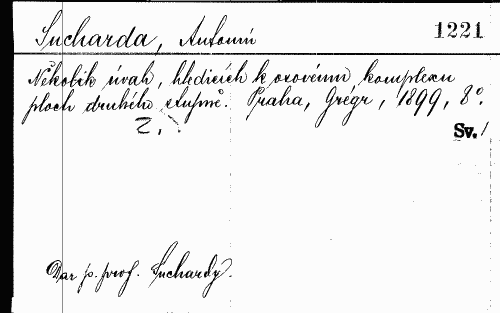 Sucharda, Antonín 1221
Několik úvah, hledících k osovému komplexu
ploch druhého stupně. Praha, Grégr, 1899, 8°.
2.
Sv. /
Dar p. prof. Suchardy.